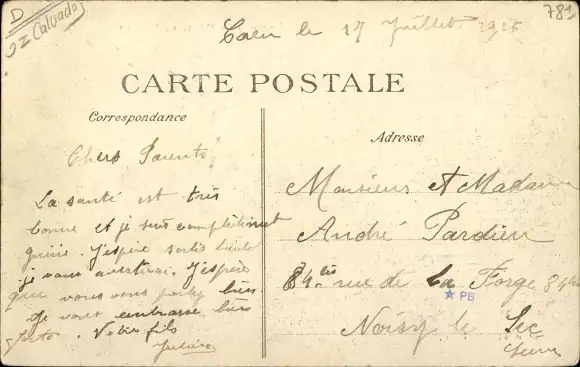 D
Calvados
781
Caen le 17 Juillet
CARTE POSTALE
Correspondance
Adresse
Chers Parents
La santé est très
bonne et je suis complètement
guérie. J'espère sortir bientôt
je vous avertirai. J'espère
que vous vous portez bien.
Je vous embrasse bien
Votre fils
Monsieur et Madame
André Pardieu
84 bis rue de La Forge 84 bis
PB
Noisy le Sec
Seine